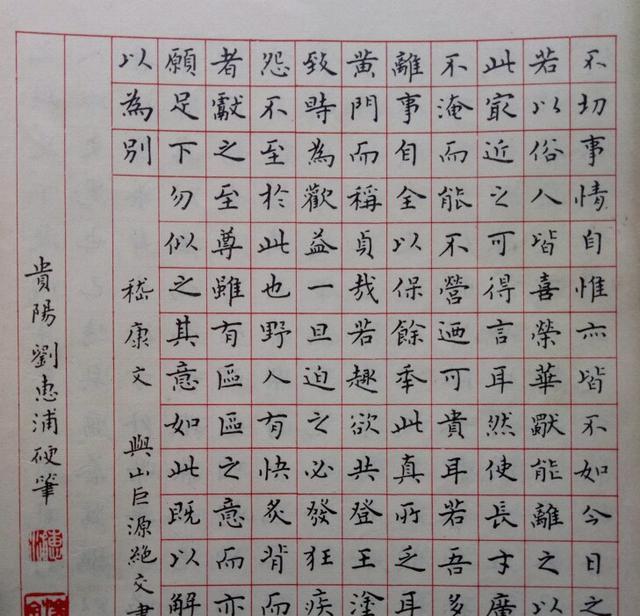 不切事情自惟亦皆不如今日之
若以俗人皆喜榮華獸能離之以
此冣近之可得言耳然使長才廣
不淹而能不營迺可貴耳若吾多
離事自全以保餘年此真所乏耳
黄門而稱貞哉若趣欲共登王塗
致時為歡益一旦迫之必發狂疾
怨不至於此也野人有快炙背而
者獻之至尊雖有區區之意而亦
願足下勿似之其意如此既以解
以為別
嵇康文
與山巨源絕文書
貴陽劉惠浦硬筆